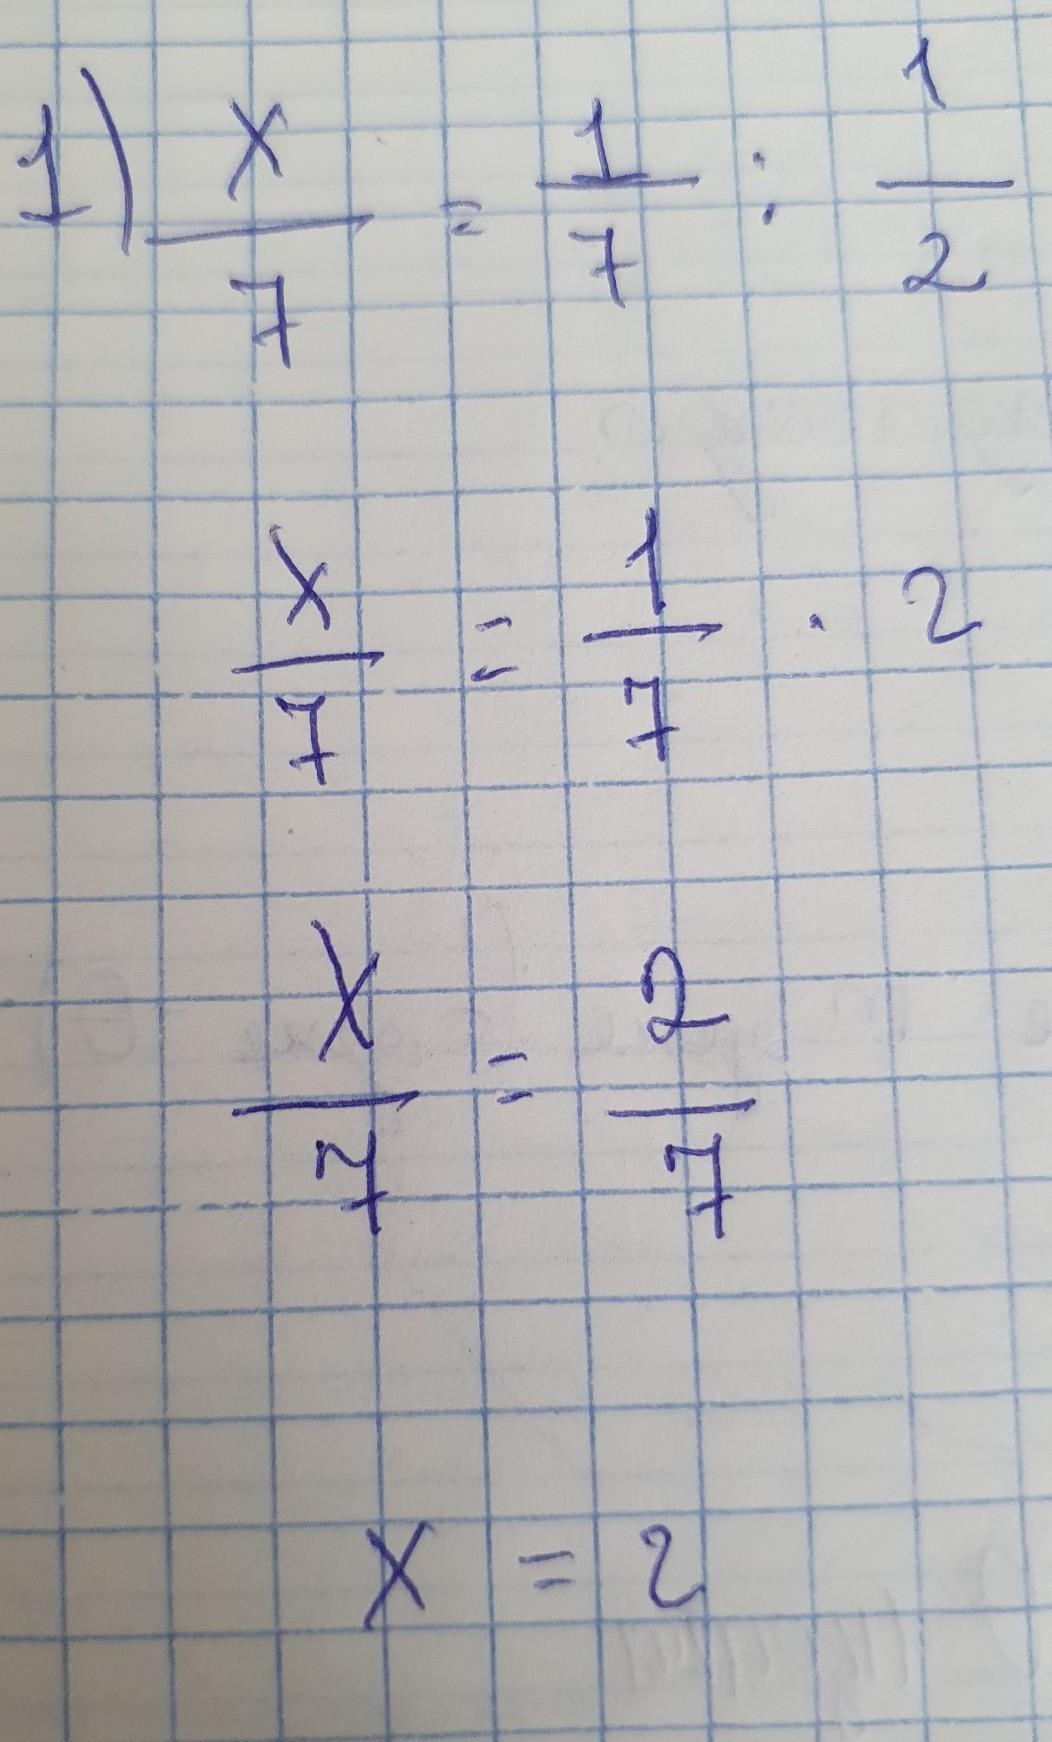 1) x/7 = 1/7 : 1/2
x/7 = 1/7 · 2
x/7 = 2/7
x = 2